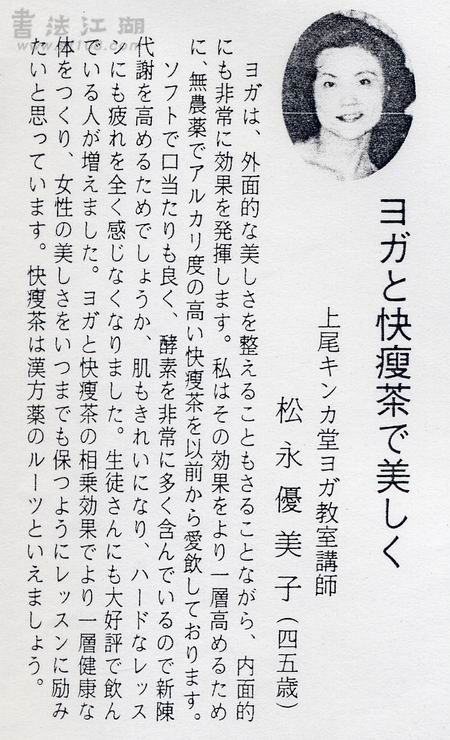 書法江湖
ヨガと快痩茶で美しく
上尾キンカ堂ヨガ教室講師
松永優美子(四五歳)
ヨガは、外面的な美しさを整えることもさることながら、内面的
にも非常に効果を発揮します。私はその効果をより一層高めるため
に、無農薬でアルカリ度の高い快痩茶を以前から愛飲しております。
ソフトで口当たりも良く、酵素を非常に多く含んでいるので新陳
代謝を高めるためでしょうか、肌もきれいになり、ハードなレッス
ンにも疲れを全く感じなくなりました。生徒さんにも大好評で飲ん
でいる人が増えました。ヨガと快痩茶の相乗効果でより一層健康な
体をつくり、女性の美しさをいつまでも保つようにレッスンに励み
たいと思っています。快痩茶は漢方薬のルーツといえましょう。